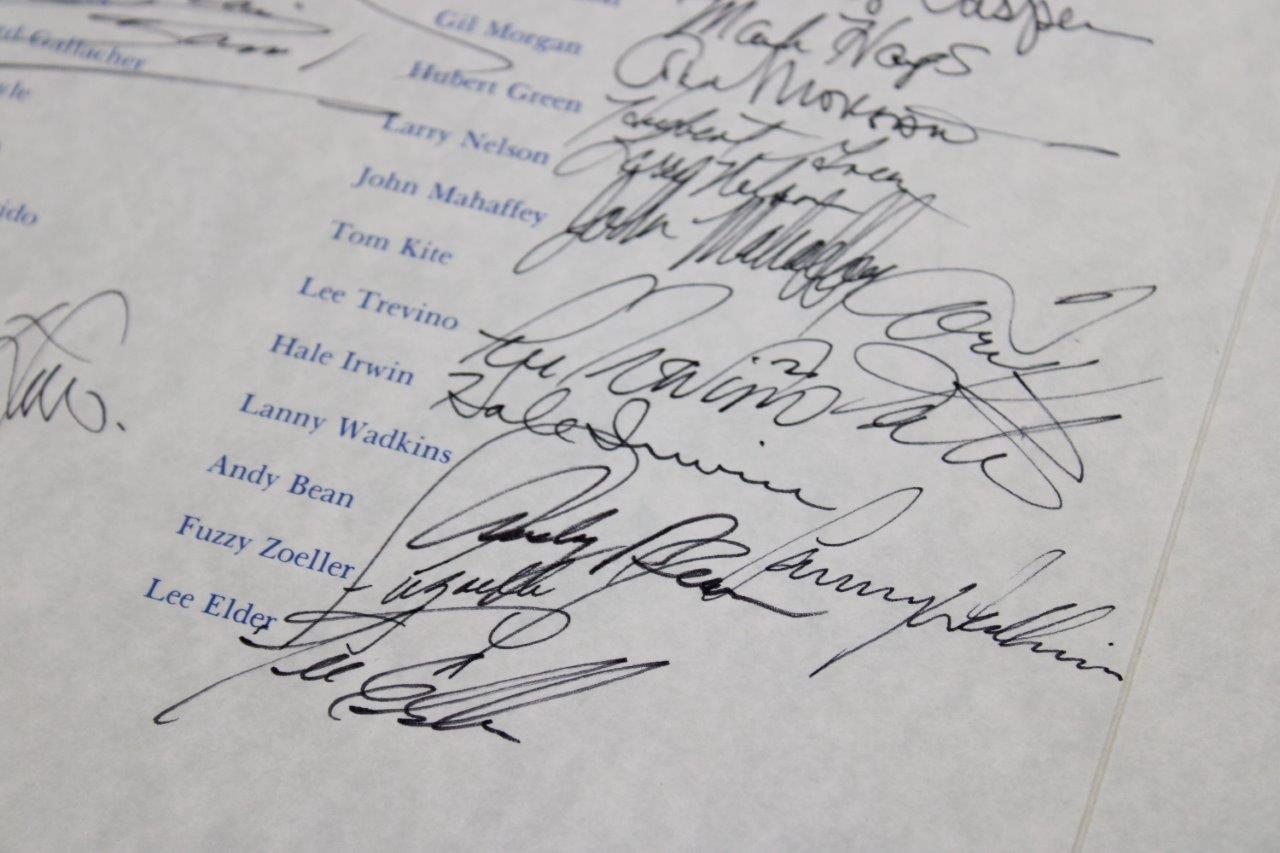 Casper
Mark Hays
Gil Morgan
Gil Morgan
Hubert Green
Hubert Green
Larry Nelson
Larry Nelson
John Mahaffey
John Mahaffey
Tom Kite
Tom Kite
Lee Trevino
Lee Trevino
Hale Irwin
Hale Irwin
Lanny Wadkins
Lanny Wadkins
Andy Bean
Andy Bean
Fuzzy Zoeller
Fuzzy
Lee Elder
Lee Elder
Gallacher